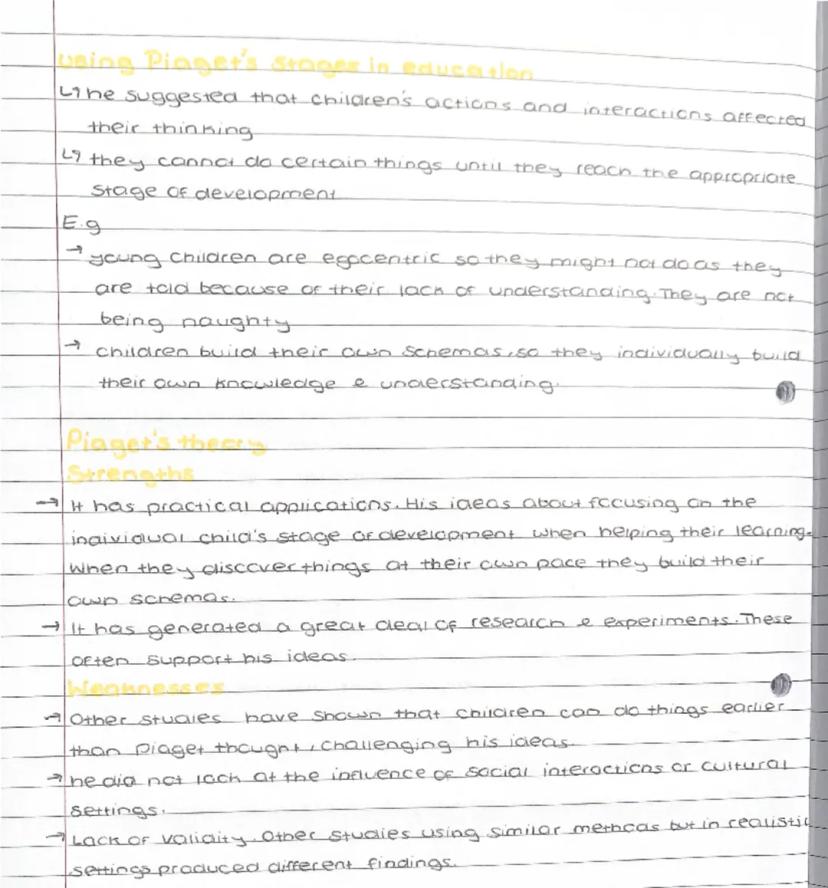 using Piaget's stages in education
↳ he suggested that children's actions and interactions affected
their thinking
↳ they cannot do certain things until they reach the appropriate
stage of development
E.g
→ young children are egocentric so they might not do as they
are told because of their lack of understanding. They are not
being naughty
→ children build their own schemas, so they individually build
their own knowledge & understanding.
Piaget's theory
Strengths
→ It has practical applications. His ideas about focusing on the
individual child's stage of development when helping their learning.
When they discover things at their own pace they build their
own schemas.
→ It has generated a great deal of research & experiments. These
often support his ideas.
Weaknesses
→ Other studies have shown that children can do things earlier
than Piaget thought, challenging his ideas.
→ he did not look at the influence of social interactions or cultural
settings.
→ Lack of validity. Other studies using similar methods but in realistic
settings produced different findings.